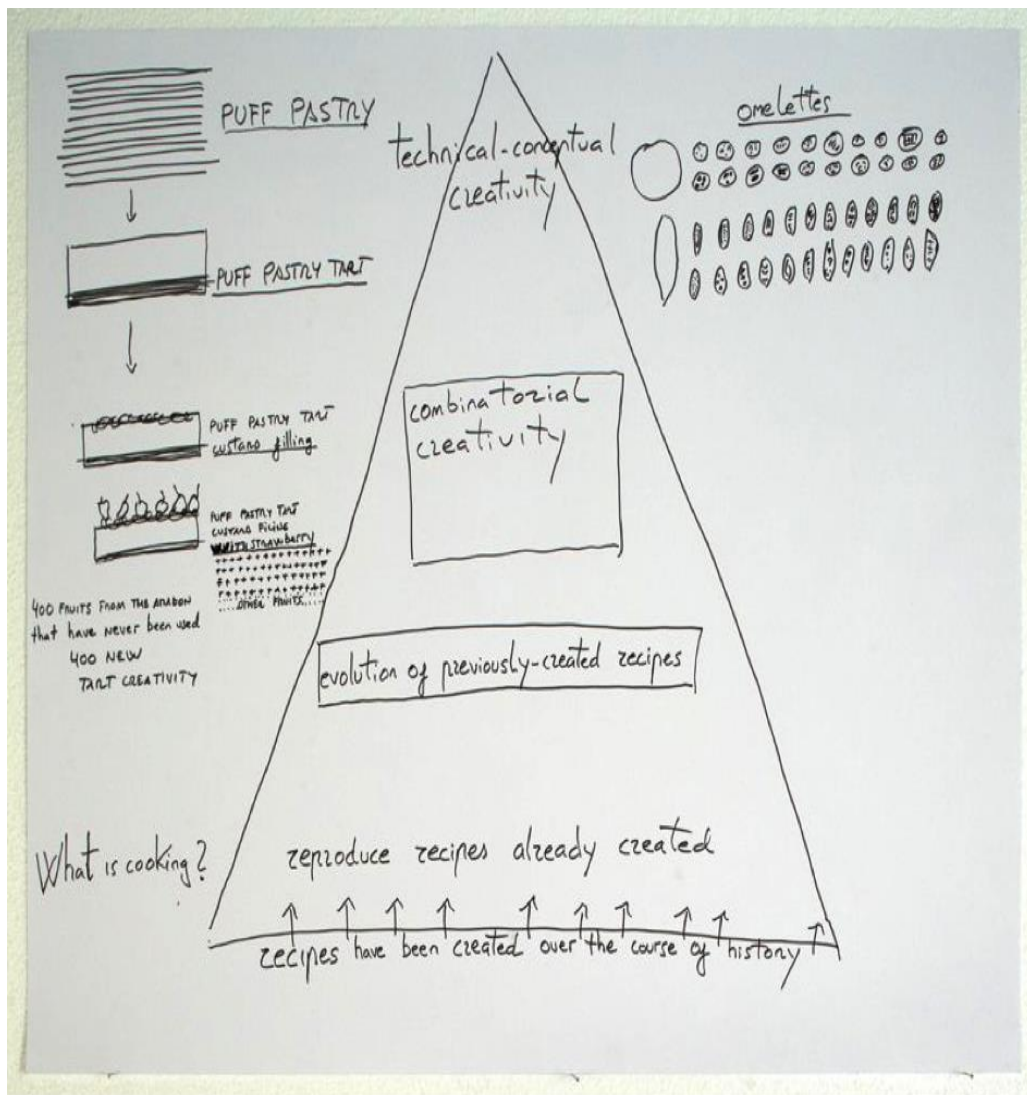 PUFF PASTRY
PUFF PASTRY TART
PUFF PASTRY TART
CUSTARD filling
PUFF PASTRY TART
CUSTARD FILING
WITH STRAWBERRY
.....OTHER FRUITS.....
400 FRUITS FROM THE
that have never been used
400 NEW
TART CREATIVITY
What is cooking?
technical-conceptual
creativity
combinatorial
creativity
evolution of previously-created recipes
reproduce recipes already created
recipes have been created over the course of history
omelettes